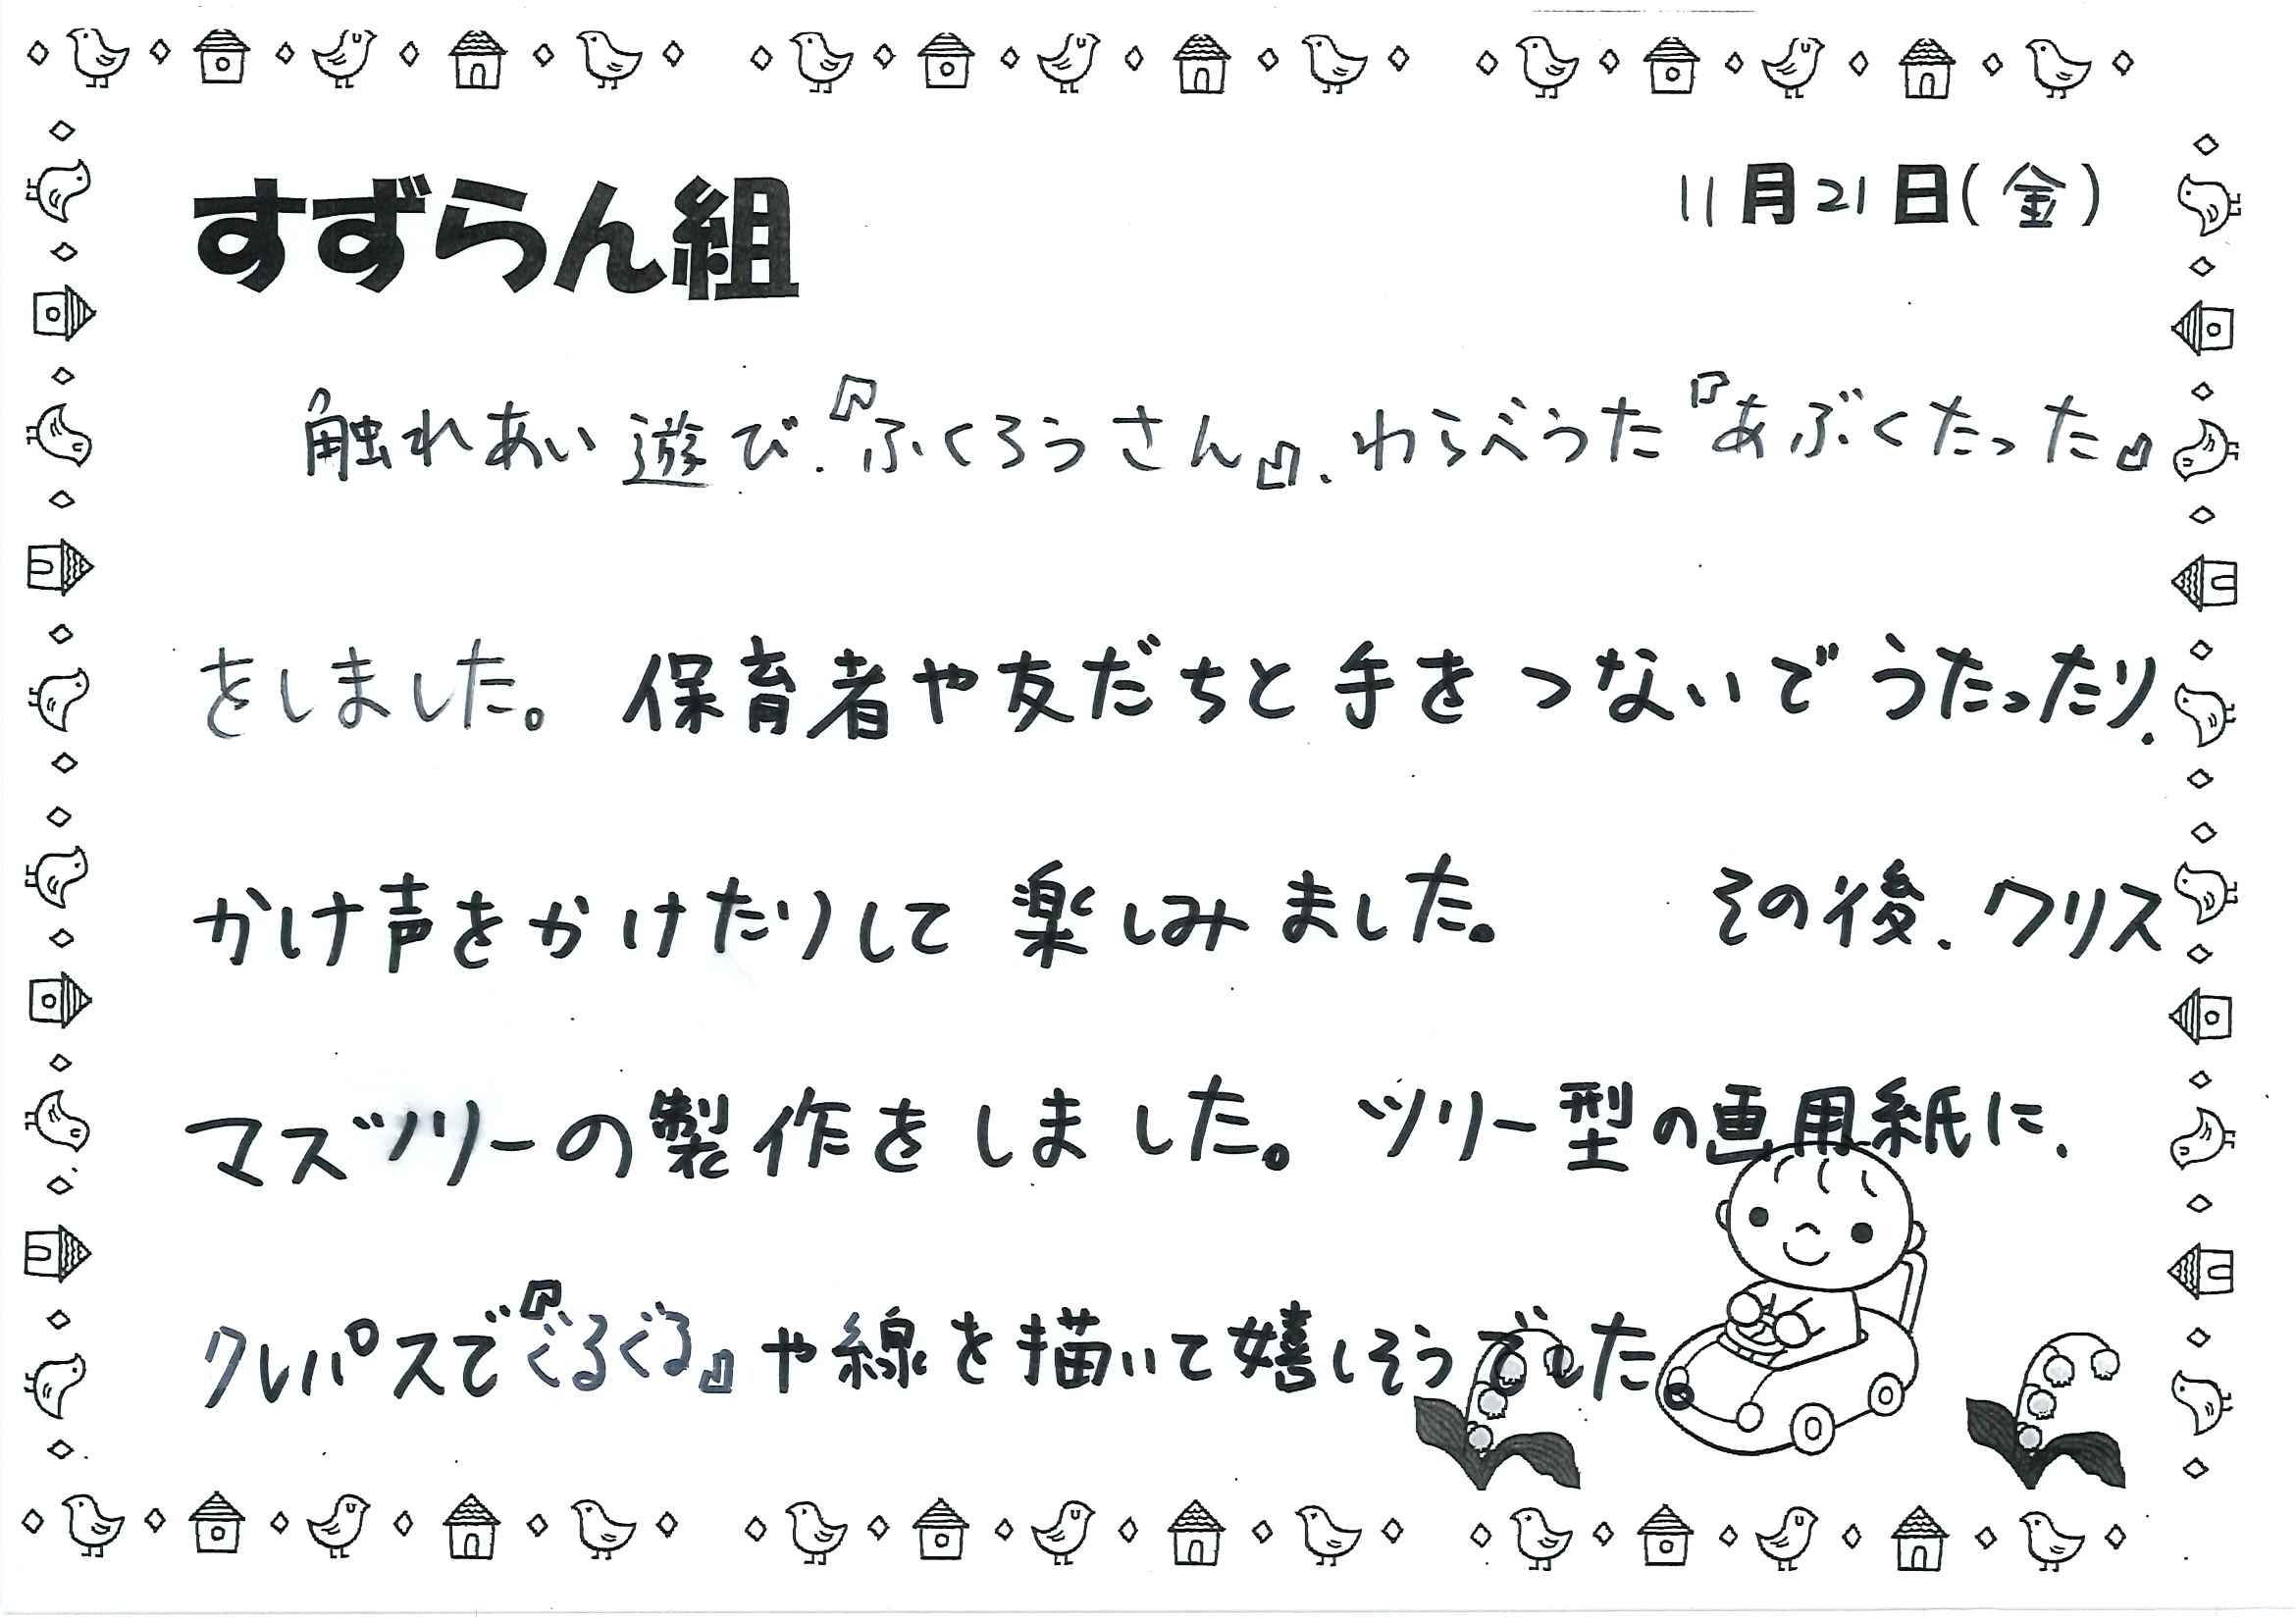 すずらん組
11月21日(金)
触れあい遊び、『ふくろうさん』、わらべうた『あぶくたった』
をしました。保育者や友だちと手をつないでうたったり、
かけ声をかけたりして楽しみました。 その後、クリス
マスツリーの製作をしました。ツリー型の画用紙に、
クレパスで『ぐるぐる』や線を描いて嬉しそうでした。